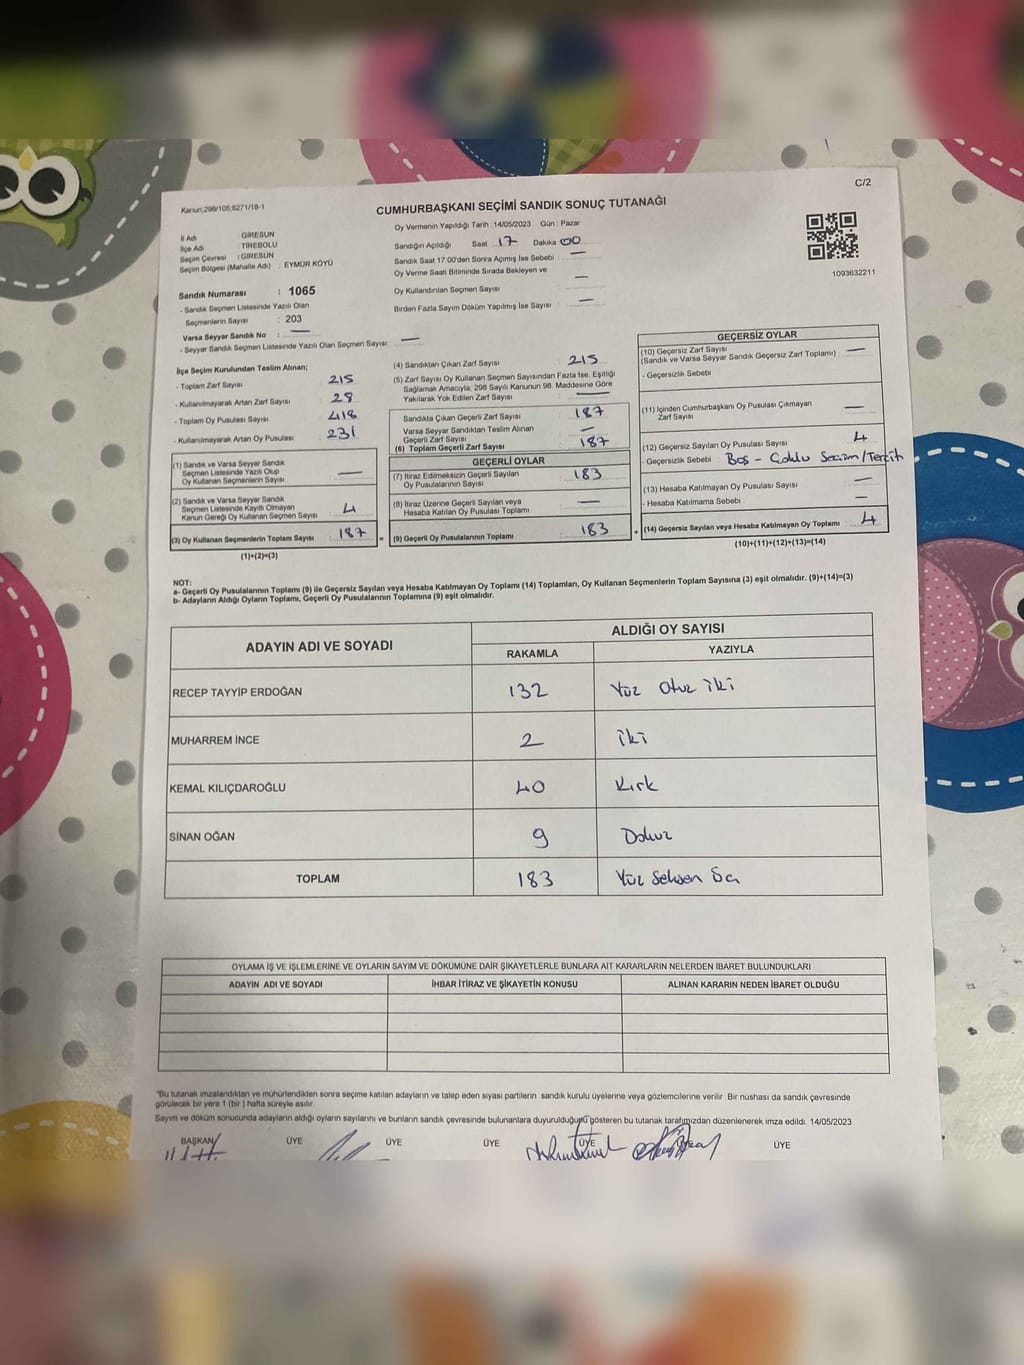 C/2
Kanun;298/105;6271/18-1
CUMHURBAŞKANI SEÇİMİ SANDIK SONUÇ TUTANAĞI
Oy Vermenin Yapıldığı Tarih : 14/05/2023 Gün : Pazar
İl Adı : GİRESUN
İlçe Adı : TİREBOLU
Seçim Çevresi : GİRESUN
Seçim Bölgesi (Mahalle Adı) : EYMÜR KÖYÜ
Sandığın Açıldığı Saat : 17 Dakika 00
Sandık Saat 17:00'den Sonra Açımış İse Sebebi : —
Oy Verme Saati Bitiminde Sırada Bekleyen ve
Oy Kullandırılan Seçmen Sayısı : —
Birden Fazla Sayım Döküm Yapılmış İse Sayısı : —
1093632211
Sandık Numarası : 1065
- Sandık Seçmen Listesinde Yazılı Olan
Seçmenlerin Sayısı : 203
Varsa Seyyar Sandık No : —
- Seyyar Sandık Seçmen Listesinde Yazılı Olan Seçmen Sayısı : —
İlçe Seçim Kurulundan Teslim Alınan;
- Toplam Zarf Sayısı : 215
- Kullanılmayarak Artan Zarf Sayısı : 28
- Toplam Oy Pusulası Sayısı : 418
- Kullanılmayarak Artan Oy Pusulası : 231
(1) Sandık ve Varsa Seyyar Sandık
Seçmen Listesinde Yazılı Olup
Oy Kullanan Seçmenlerin Sayısı : —
(2) Sandık ve Varsa Seyyar Sandık
Seçmen Listesinde Kayıtlı Olmayan
Kanun Gereği Oy Kullanan Seçmen Sayısı : 4
(3) Oy Kullanan Seçmenlerin Toplam Sayısı : 187
(1)+(2)=(3)
(4) Sandıktan Çıkan Zarf Sayısı : 215
(5) Zarf Sayısı Oy Kullanan Seçmen Sayısından Fazla İse, Eşitliği
Sağlamak Amacıyla, 298 Sayılı Kanunun 98. Maddesine Göre
Yakılarak Yok Edilen Zarf Sayısı : —
Sandıkta Çıkan Geçerli Zarf Sayısı : 187
Varsa Seyyar Sandıktan Teslim Alınan
Geçerli Zarf Sayısı : —
(6) Toplam Geçerli Zarf Sayısı : 187
GEÇERLİ OYLAR
(7) İtiraz Edilmeksizin Geçerli Sayılan
Oy Pusulalarının Sayısı : 183
(8) İtiraz Üzerine Geçerli Sayılan veya
Hesaba Katılan Oy Pusulası Toplamı : —
= (9) Geçerli Oy Pusulalarının Toplamı : 183
GEÇERSİZ OYLAR
(10) Geçersiz Zarf Sayısı : —
(Sandık ve Varsa Seyyar Sandık Geçersiz Zarf Toplamı)
- Geçersizlik Sebebi :
(11) İçinden Cumhurbaşkanı Oy Pusulası Çıkmayan
Zarf Sayısı : —
(12) Geçersiz Sayılan Oy Pusulası Sayısı : 4
- Geçersizlik Sebebi : Boş - Çoklu Seçim/Tercih
(13) Hesaba Katılmayan Oy Pusulası Sayısı : —
- Hesaba Katılmama Sebebi : —
+ (14) Geçersiz Sayılan veya Hesaba Katılmayan Oy Toplamı : 4
(10)+(11)+(12)+(13)=(14)
NOT:
a- Geçerli Oy Pusulalarının Toplamı (9) ile Geçersiz Sayılan veya Hesaba Katılmayan Oy Toplamı (14) Toplamları, Oy Kullanan Seçmenlerin Toplam Sayısına (3) eşit olmalıdır. (9)+(14)=(3)
b- Adayların Aldığı Oyların Toplamı, Geçerli Oy Pusulalarının Toplamına (9) eşit olmalıdır.
ADAYIN ADI VE SOYADI ALDIĞI OY SAYISI
RAKAMLA YAZIYLA
RECEP TAYYİP ERDOĞAN 132 Yüz Otuz iki
MUHARREM İNCE 2 iki
KEMAL KILIÇDAROĞLU 40 Kırk
SİNAN OĞAN 9 Dokuz
TOPLAM 183 Yüz Seksen Üç
OYLAMA İŞ VE İŞLEMLERİNE VE OYLARIN SAYIM VE DÖKÜMÜNE DAİR ŞİKAYETLERLE BUNLARA AİT KARARLARIN NELERDEN İBARET BULUNDUKLARI
ADAYIN ADI VE SOYADI İHBAR İTİRAZ VE ŞİKAYETİN KONUSU ALINAN KARARIN NEDEN İBARET OLDUĞU
"Bu tutanak imzalandıktan ve mühürlendikten sonra seçime katılan adayların ve talep eden siyasi partilerin sandık kurulu üyelerine veya gözlemcilerine verilir. Bir nüshası da sandık çevresinde
görülecek bir yere 1 (bir ) hafta süreyle asılır.
Sayım ve döküm sonucunda adayların aldığı oyların sayılarını ve bunların sandık çevresinde bulunanlara duyurulduğunu gösteren bu tutanak tarafımızdan düzenlenerek imza edildi. 14/05/2023
BAŞKAN ÜYE ÜYE ÜYE ÜYE ÜYE ÜYE